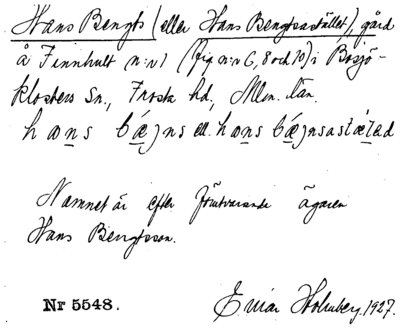 Hans Bengts (eller Hans Bengtsastället), gård
å Finnhult n:r 1 (fig n:r 6, 8 och 10) i Bosjö-
klosters sn., Frosta hd., Mlm. län.
hans bæŋs ell. hans bæŋsastætəd
Namnet är efter förutvarande ägaren
Hans Bengtsson.
Nr 5548. Einar Holmberg. 1927.